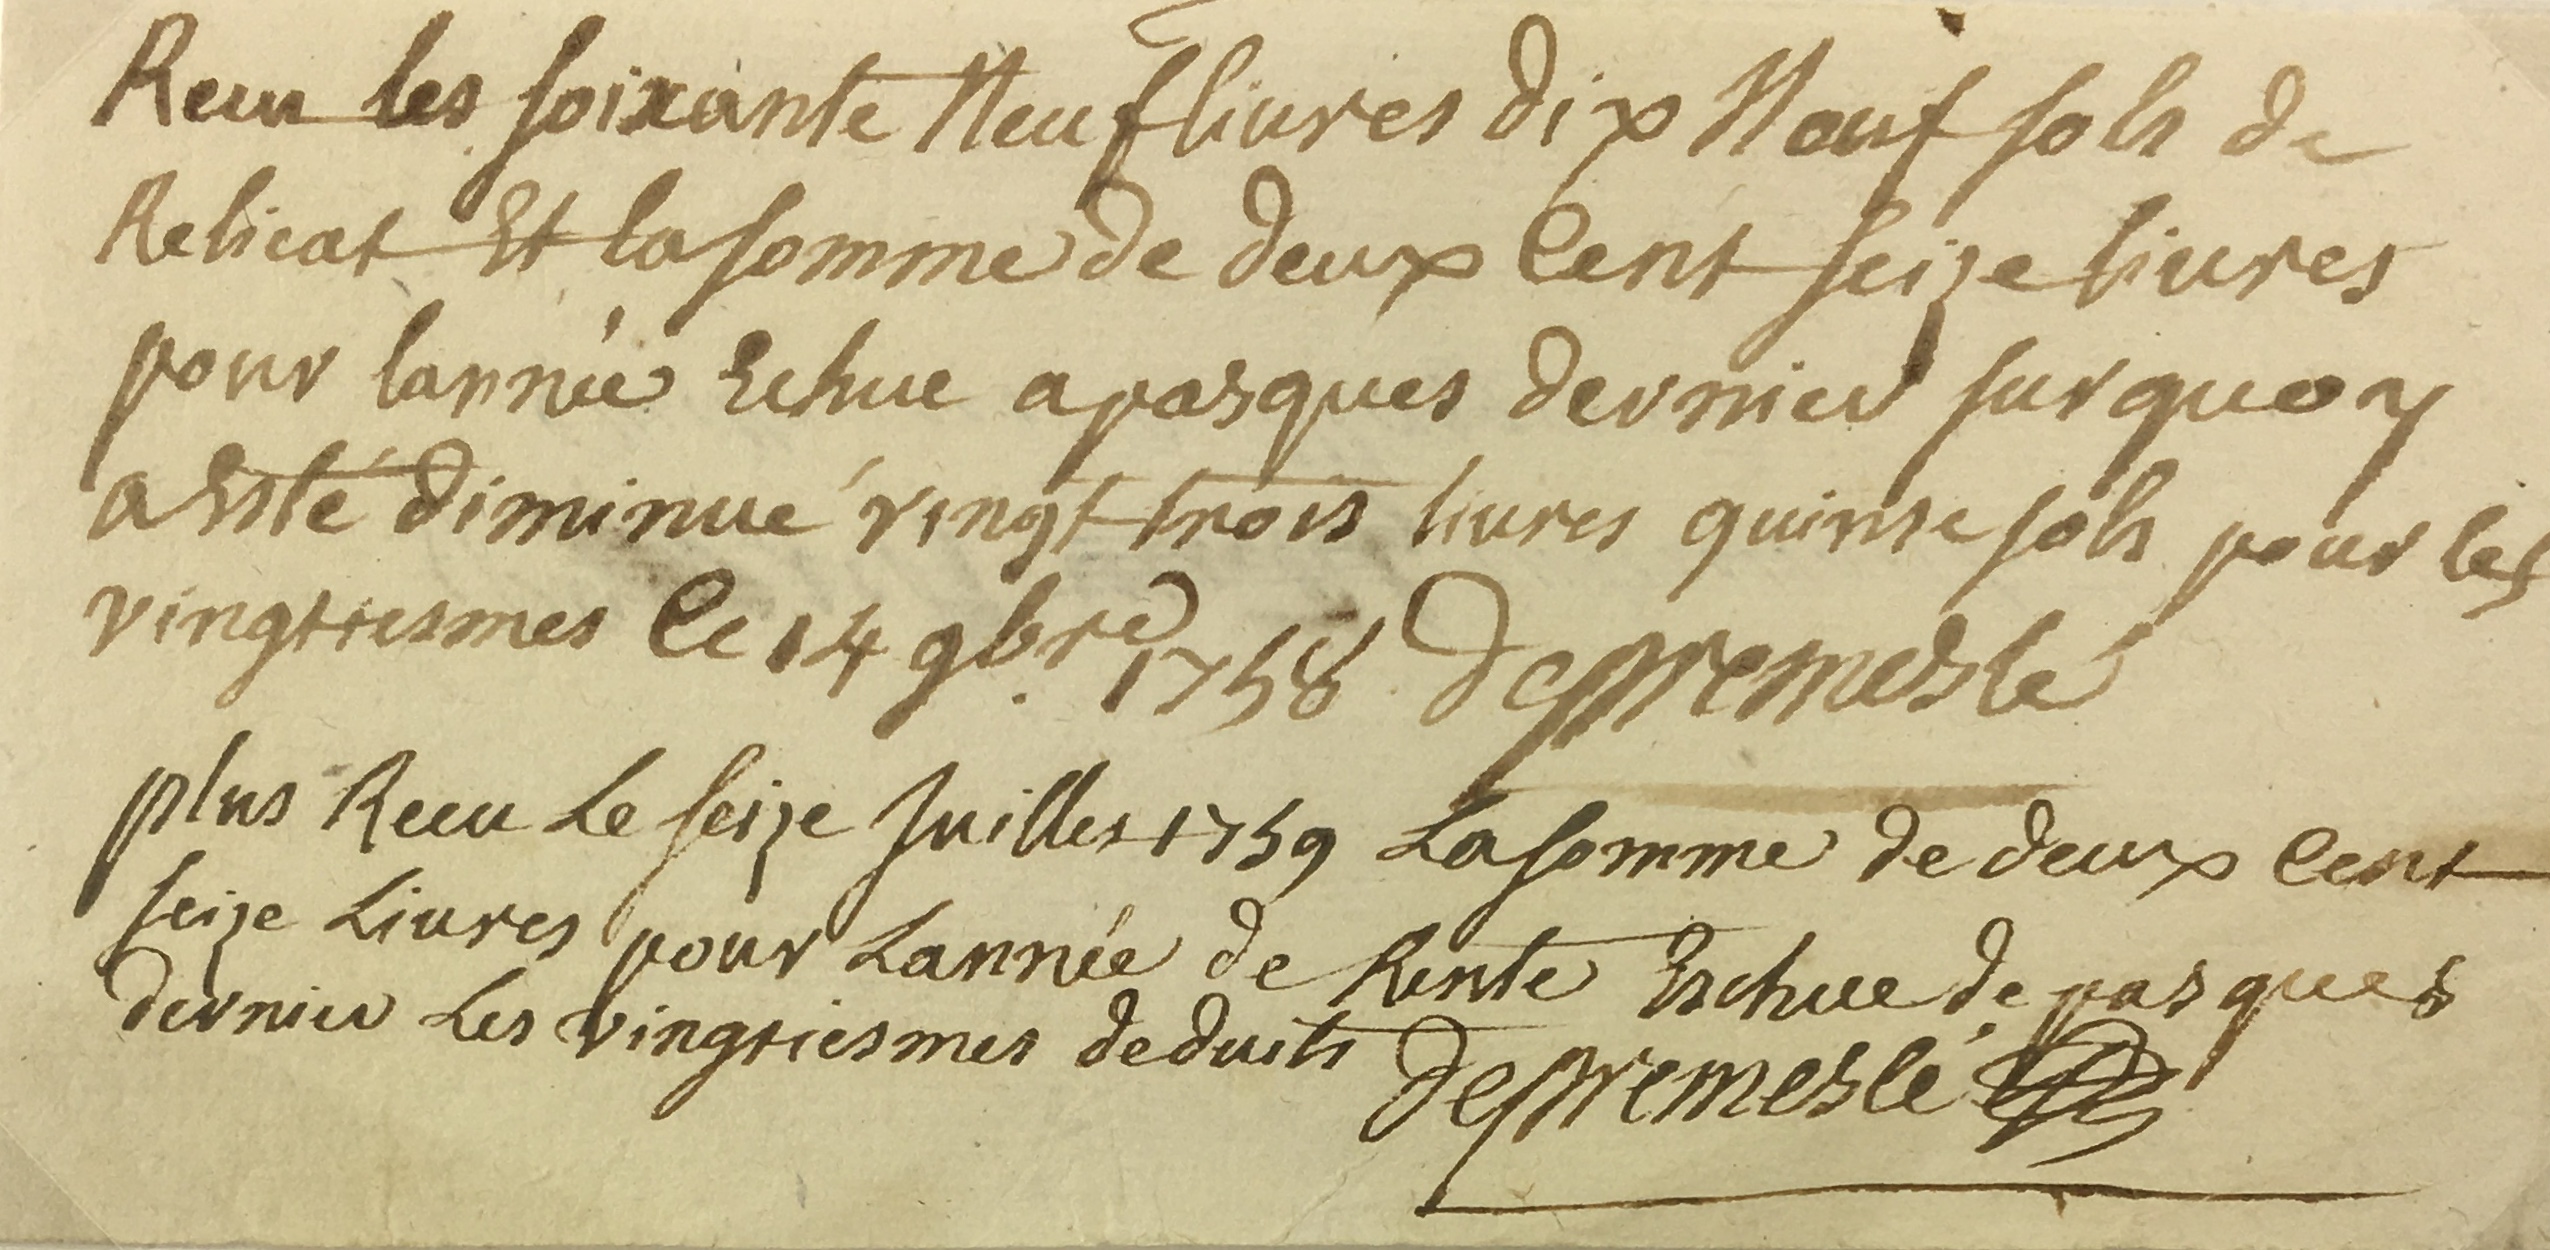 Receu les soixante Neuf livres dix Neuf sols de
Relicat Et la somme de deux Cent seize livres
pour lannée Echue a pasques dernier sur quoy
a Esté diminué vingt trois livres quinse sols pour les
vingtiesmes Ce 14 9bre 1758 depremeslé
plus Receu Le seize Juillet 1759 La somme de deux Cent
seize Livres pour Lannée de Rente Eschue de pasques
dernier Les vingtiesmes deduits depremeslé